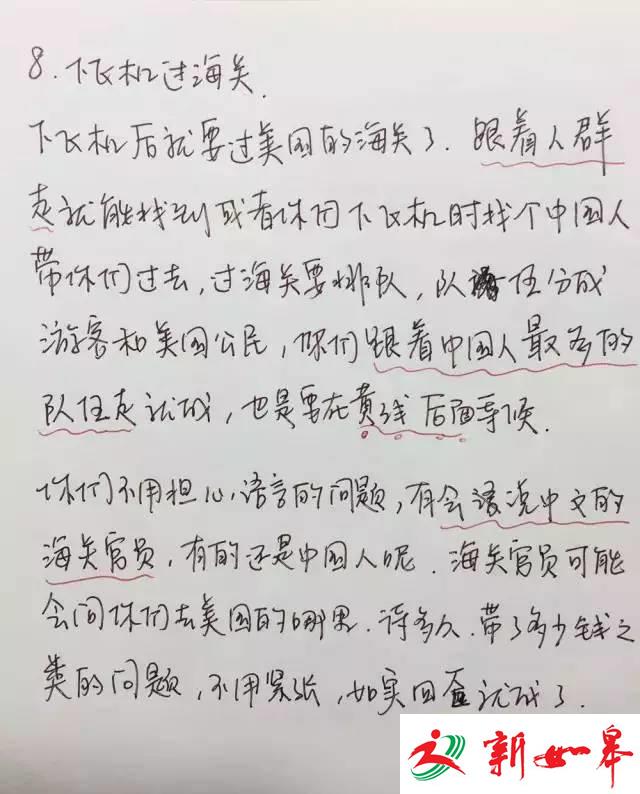 8. 下飞机过海关.
下飞机后就要过美国的海关了. 跟着人群
走就能找到或者你们下飞机时找个中国人
带你们过去, 过海关要排队, 队伍分成
游客和美国公民, 你们跟着中国人最多的
队伍走就成, 也是要在黄线后面等候.
你们不用担心语言的问题, 有会说中文的
海关官员, 有的还是中国人呢. 海关官员可能
会问你们去美国的哪里. 待多久. 带了多少钱之
类的问题, 不用紧张, 如实回答就成了.
新如皋